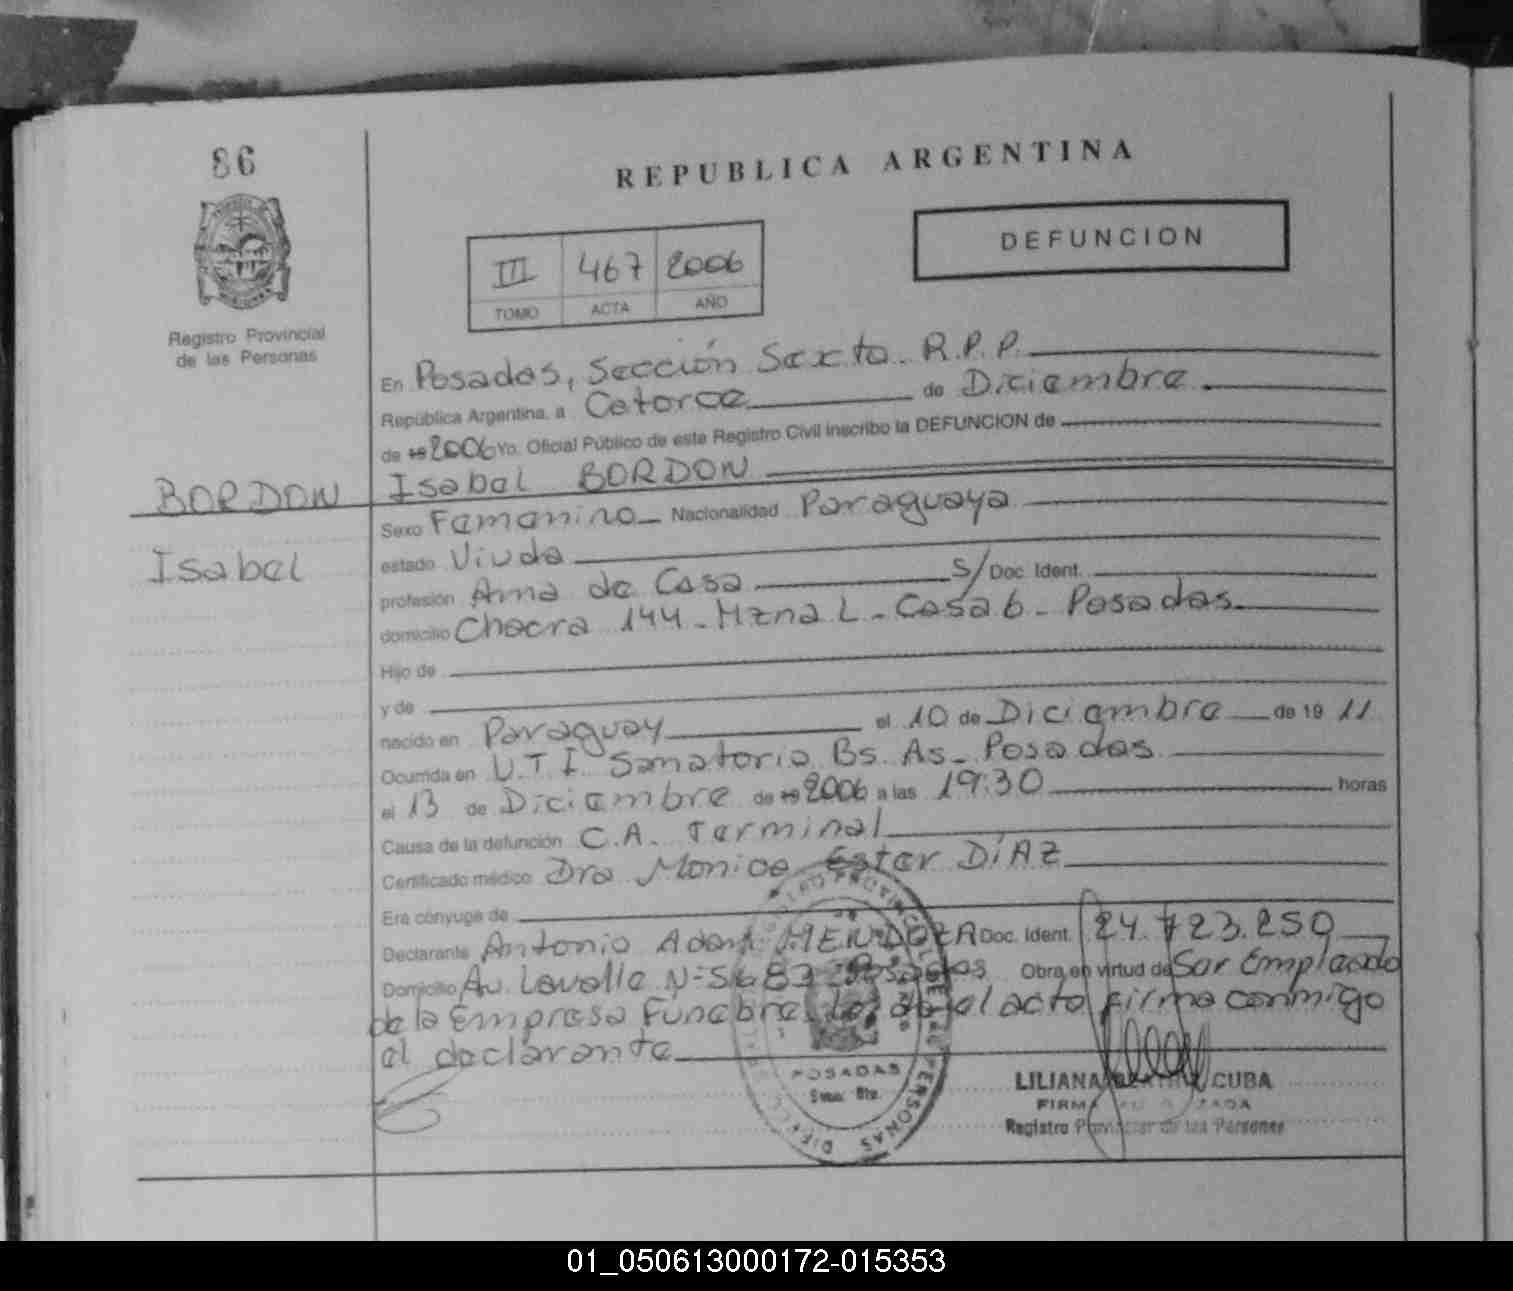 86
REPUBLICA ARGENTINA
DEFUNCION
III 467 2006
TOMO ACTA AÑO
Registro Provincial
de las Personas
En Posadas, Sección Sexta R.P.P.
República Argentina, a Catorce de Diciembre
de 19 2006 Yo, Oficial Público de este Registro Civil inscribo la DEFUNCION de
BORDON Isabel BORDON
Sexo Femenino Nacionalidad Paraguaya
Isabel
estado Viuda
profesión Ama de Casa S/ Doc. Ident.
domicilio Chacra 144 - Mzna L - Casa 6 - Posadas
Hijo de
y de
nacido en Paraguay el 10 de Diciembre de 19 11
Ocurrida en U.T.I. Sanatorio Bs. As. Posadas
el 13 de Diciembre de 19 2006 a las 19:30 horas
Causa de la defunción C.A. Terminal
Certificado médico Dra Monica Ester DÍAZ
Era cónyuge de
Declarante Antonio MENDOZA Doc. Ident. 24.723.250
Domicilio Av. Lavalle Nº 5683 Posadas Obra en virtud de Ser Empleado
de la Empresa Funebre. el acto firma conmigo
el declarante
REGISTRO PROVINCIAL DE LAS PERSONAS
POSADAS
LILIANA BEATRIZ CUBA
FIRMA AUTORIZADA
Registro Provincial de las Personas
01_050613000172-015353